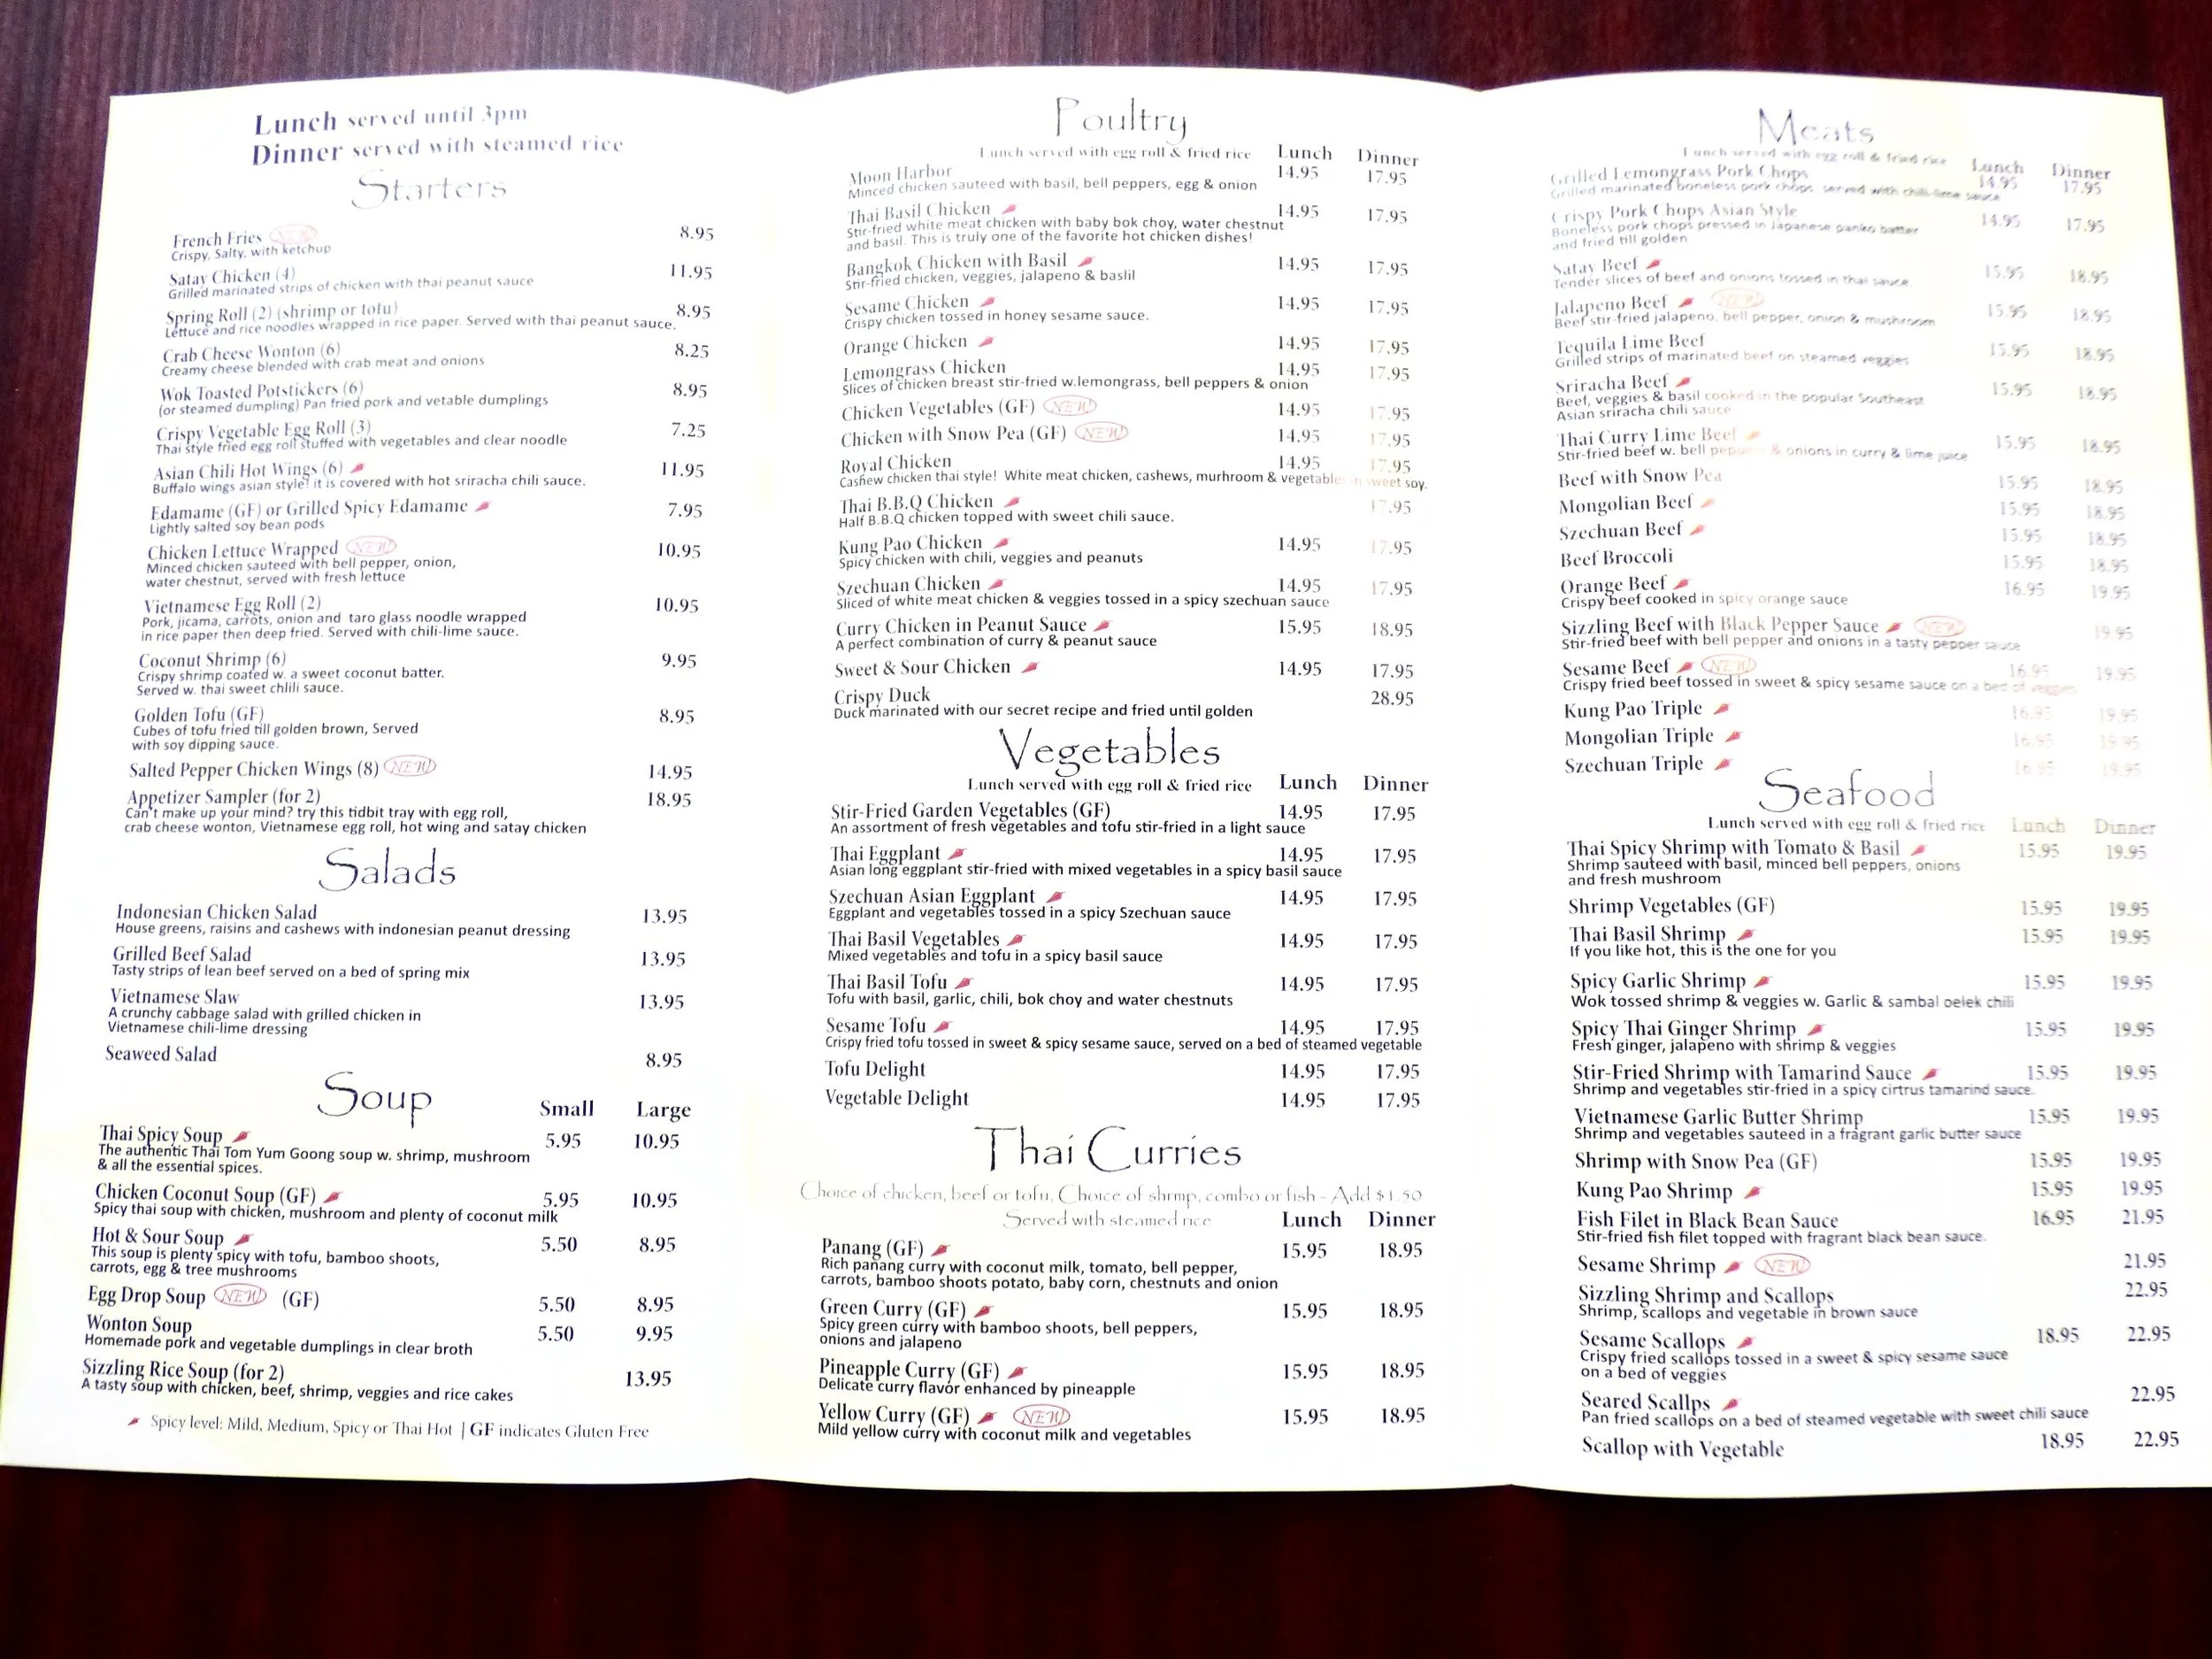 Lunch served until 3pm
Dinner served with steamed rice
Starters
French Fries NEW 8.95
Crispy, Salty, with ketchup
Satay Chicken (4) 11.95
Grilled marinated strips of chicken with thai peanut sauce
Spring Roll (2) (shrimp or tofu) 8.95
Lettuce and rice noodles wrapped in rice paper. Served with thai peanut sauce.
Crab Cheese Wonton (6) 8.25
Creamy cheese blended with crab meat and onions
Wok Toasted Potstickers (6) 8.95
(or steamed dumpling) Pan fried pork and vetable dumplings
Crispy Vegetable Egg Roll (3) 7.25
Thai style fried egg roll stuffed with vegetables and clear noodle
Asian Chili Hot Wings (6) 11.95
Buffalo wings asian style! it is covered with hot sriracha chili sauce.
Edamame (GF) or Grilled Spicy Edamame 7.95
Lightly salted soy bean pods
Chicken Lettuce Wrapped NEW 10.95
Minced chicken sauteed with bell pepper, onion,
water chestnut, served with fresh lettuce
Vietnamese Egg Roll (2) 10.95
Pork, jicama, carrots, onion and taro glass noodle wrapped
in rice paper then deep fried. Served with chili-lime sauce.
Coconut Shrimp (6) 9.95
Crispy shrimp coated w. a sweet coconut batter.
Served w. thai sweet chlili sauce.
Golden Tofu (GF) 8.95
Cubes of tofu fried till golden brown, Served
with soy dipping sauce.
Salted Pepper Chicken Wings (8) NEW 14.95
Appetizer Sampler (for 2) 18.95
Can't make up your mind? try this tidbit tray with egg roll,
crab cheese wonton, Vietnamese egg roll, hot wing and satay chicken
Salads
Indonesian Chicken Salad 13.95
House greens, raisins and cashews with indonesian peanut dressing
Grilled Beef Salad 13.95
Tasty strips of lean beef served on a bed of spring mix
Vietnamese Slaw 13.95
A crunchy cabbage salad with grilled chicken in
Vietnamese chili-lime dressing
Seaweed Salad 8.95
Soup Small Large
Thai Spicy Soup 5.95 10.95
The authentic Thai Tom Yum Goong soup w. shrimp, mushroom
& all the essential spices.
Chicken Coconut Soup (GF) 5.95 10.95
Spicy thai soup with chicken, mushroom and plenty of coconut milk
Hot & Sour Soup 5.50 8.95
This soup is plenty spicy with tofu, bamboo shoots,
carrots, egg & tree mushrooms
Egg Drop Soup NEW (GF) 5.50 8.95
Wonton Soup 5.50 9.95
Homemade pork and vegetable dumplings in clear broth
Sizzling Rice Soup (for 2) 13.95
A tasty soup with chicken, beef, shrimp, veggies and rice cakes
Spicy level: Mild, Medium, Spicy or Thai Hot | GF indicates Gluten Free
Poultry
Lunch served with egg roll & fried rice Lunch Dinner
Moon Harbor 14.95 17.95
Minced chicken sauteed with basil, bell peppers, egg & onion
Thai Basil Chicken 14.95 17.95
Stir-fried white meat chicken with baby bok choy, water chestnut
and basil. This is truly one of the favorite hot chicken dishes!
Bangkok Chicken with Basil 14.95 17.95
Stir-fried chicken, veggies, jalapeno & baslil
Sesame Chicken 14.95 17.95
Crispy chicken tossed in honey sesame sauce.
Orange Chicken 14.95 17.95
Lemongrass Chicken 14.95 17.95
Slices of chicken breast stir-fried w.lemongrass, bell peppers & onion
Chicken Vegetables (GF) NEW 14.95 17.95
Chicken with Snow Pea (GF) NEW 14.95 17.95
Royal Chicken 14.95 17.95
Cashew chicken thai style! White meat chicken, cashews, murhroom & vegetables in sweet soy.
Thai B.B.Q Chicken 17.95
Half B.B.Q chicken topped with sweet chili sauce.
Kung Pao Chicken 14.95 17.95
Spicy chicken with chili, veggies and peanuts
Szechuan Chicken 14.95 17.95
Sliced of white meat chicken & veggies tossed in a spicy szechuan sauce
Curry Chicken in Peanut Sauce 15.95 18.95
A perfect combination of curry & peanut sauce
Sweet & Sour Chicken 14.95 17.95
Crispy Duck 28.95
Duck marinated with our secret recipe and fried until golden
Vegetables
Lunch served with egg roll & fried rice Lunch Dinner
Stir-Fried Garden Vegetables (GF) 14.95 17.95
An assortment of fresh vegetables and tofu stir-fried in a light sauce
Thai Eggplant 14.95 17.95
Asian long eggplant stir-fried with mixed vegetables in a spicy basil sauce
Szechuan Asian Eggplant 14.95 17.95
Eggplant and vegetables tossed in a spicy Szechuan sauce
Thai Basil Vegetables 14.95 17.95
Mixed vegetables and tofu in a spicy basil sauce
Thai Basil Tofu 14.95 17.95
Tofu with basil, garlic, chili, bok choy and water chestnuts
Sesame Tofu 14.95 17.95
Crispy fried tofu tossed in sweet & spicy sesame sauce, served on a bed of steamed vegetable
Tofu Delight 14.95 17.95
Vegetable Delight 14.95 17.95
Thai Curries
Choice of chicken, beef or tofu, Choice of shrmp, combo or fish - Add $1.50
Served with steamed rice Lunch Dinner
Panang (GF) 15.95 18.95
Rich panang curry with coconut milk, tomato, bell pepper,
carrots, bamboo shoots potato, baby corn, chestnuts and onion
Green Curry (GF) 15.95 18.95
Spicy green curry with bamboo shoots, bell peppers,
onions and jalapeno
Pineapple Curry (GF) 15.95 18.95
Delicate curry flavor enhanced by pineapple
Yellow Curry (GF) NEW 15.95 18.95
Mild yellow curry with coconut milk and vegetables
Meats
Lunch served with egg roll & fried rice Lunch Dinner
Grilled Lemongrass Pork Chops 14.95 17.95
Grilled marinated boneless pork chops served with chili-lime sauce
Crispy Pork Chops Asian Style 14.95 17.95
Boneless pork chops pressed in Japanese panko batter
and fried till golden
Satay Beef 15.95 18.95
Tender slices of beef and onions tossed in thai sauce
Jalapeno Beef NEW 15.95 18.95
Beef stir-fried jalapeno, bell pepper, onion & mushroom
Tequila Lime Beef 15.95 18.95
Grilled strips of marinated beef on steamed veggies
Sriracha Beef 15.95 18.95
Beef, veggies & basil cooked in the popular Southeast
Asian sriracha chili sauce
Thai Curry Lime Beef 15.95 18.95
Stir-fried beef w. bell peppers & onions in curry & lime juice
Beef with Snow Pea 15.95 18.95
Mongolian Beef 15.95 18.95
Szechuan Beef 15.95 18.95
Beef Broccoli 15.95 18.95
Orange Beef 16.95 19.95
Crispy beef cooked in spicy orange sauce
Sizzling Beef with Black Pepper Sauce NEW 19.95
Stir-fried beef with bell pepper and onions in a tasty pepper sauce
Sesame Beef NEW 16.95 19.95
Crispy fried beef tossed in sweet & spicy sesame sauce on a bed of veggies
Kung Pao Triple 16.95 19.95
Mongolian Triple 16.95 19.95
Szechuan Triple 16.95 19.95
Seafood
Lunch served with egg roll & fried rice Lunch Dinner
Thai Spicy Shrimp with Tomato & Basil 15.95 19.95
Shrimp sauteed with basil, minced bell peppers, onions
and fresh mushroom
Shrimp Vegetables (GF) 15.95 19.95
Thai Basil Shrimp 15.95 19.95
If you like hot, this is the one for you
Spicy Garlic Shrimp 15.95 19.95
Wok tossed shrimp & veggies w. Garlic & sambal oelek chili
Spicy Thai Ginger Shrimp 15.95 19.95
Fresh ginger, jalapeno with shrimp & veggies
Stir-Fried Shrimp with Tamarind Sauce 15.95 19.95
Shrimp and vegetables stir-fried in a spicy cirtrus tamarind sauce.
Vietnamese Garlic Butter Shrimp 15.95 19.95
Shrimp and vegetables sauteed in a fragrant garlic butter sauce
Shrimp with Snow Pea (GF) 15.95 19.95
Kung Pao Shrimp 15.95 19.95
Fish Filet in Black Bean Sauce 16.95 21.95
Stir-fried fish filet topped with fragrant black bean sauce.
Sesame Shrimp NEW 21.95
Sizzling Shrimp and Scallops 22.95
Shrimp, scallops and vegetable in brown sauce
Sesame Scallops 18.95 22.95
Crispy fried scallops tossed in a sweet & spicy sesame sauce
on a bed of veggies
Seared Scallps 22.95
Pan fried scallops on a bed of steamed vegetable with sweet chili sauce
Scallop with Vegetable 18.95 22.95